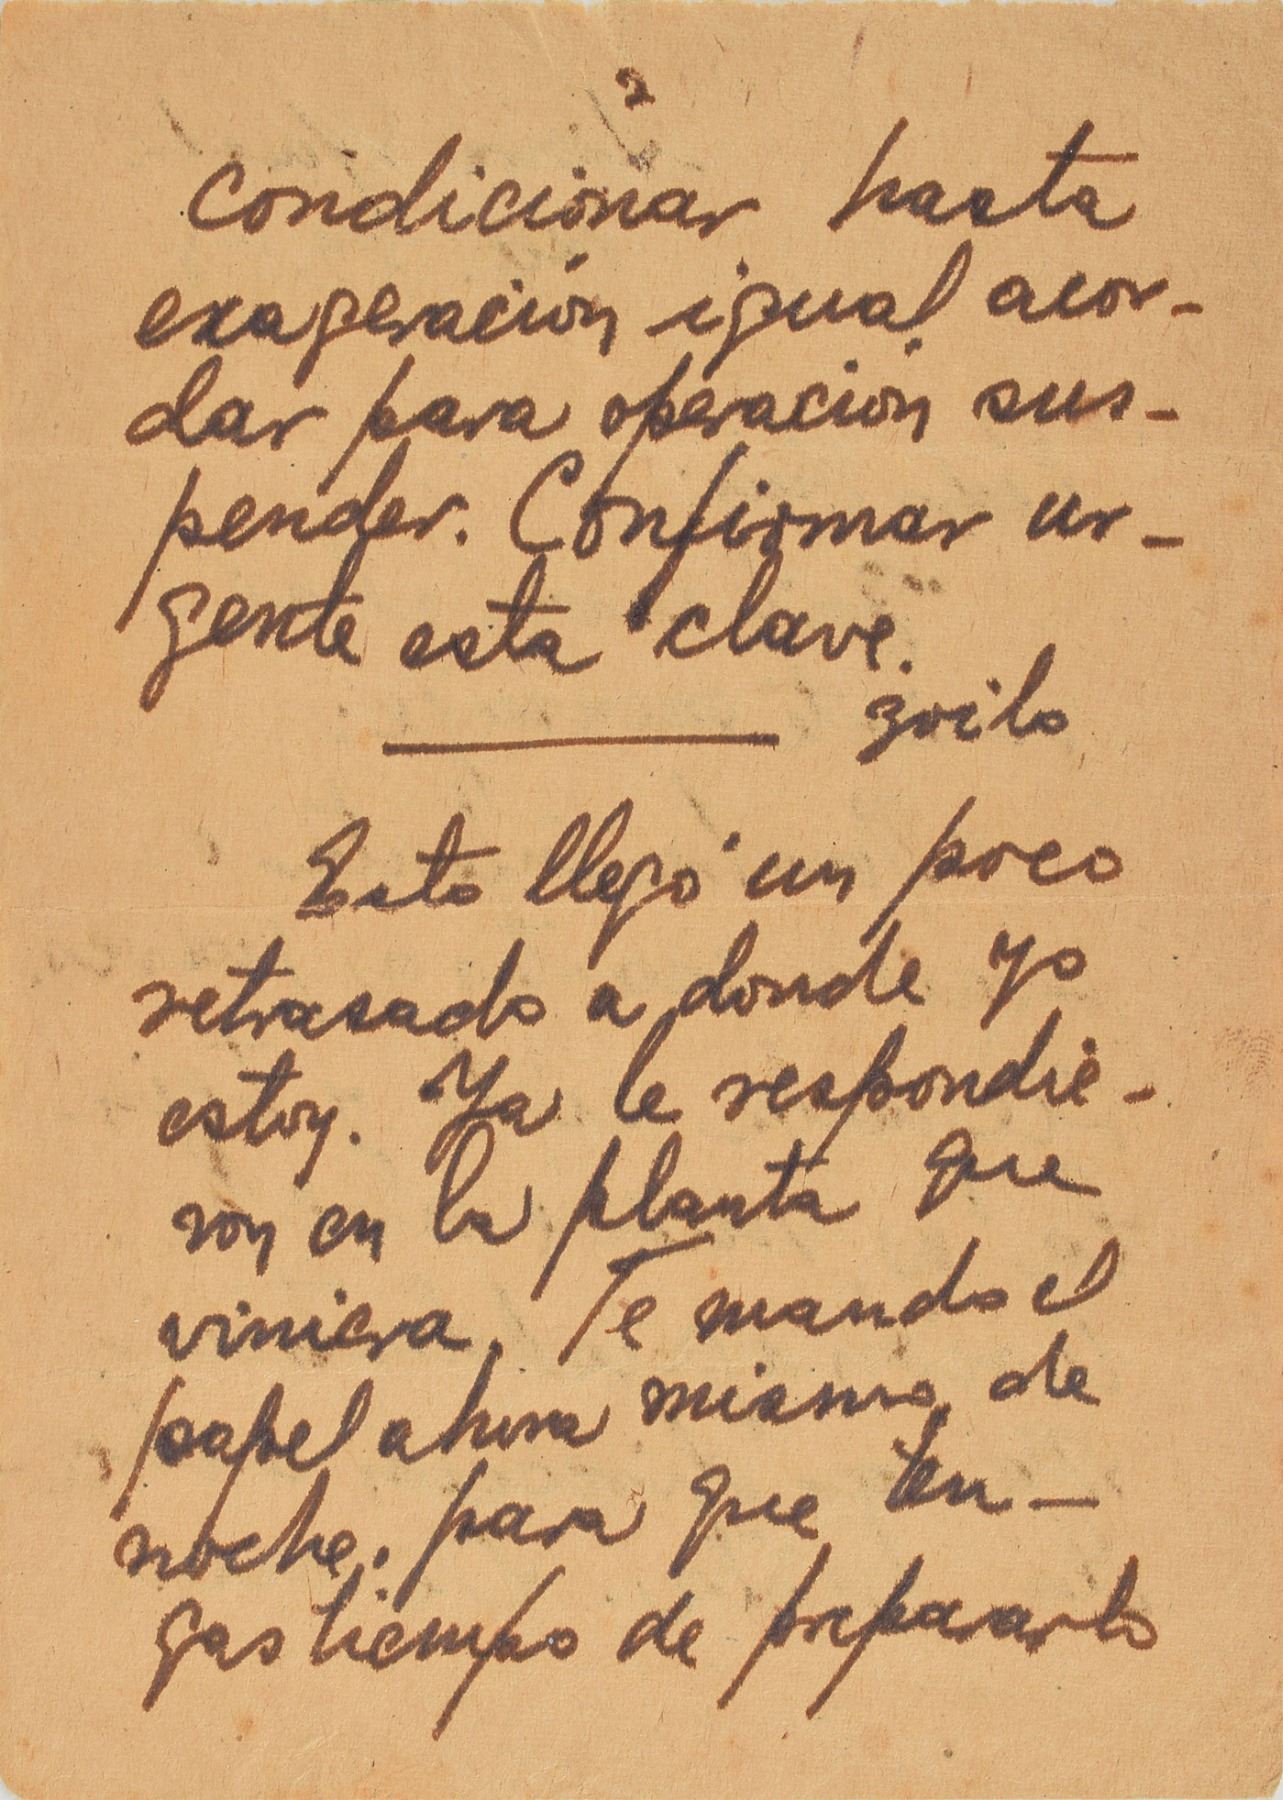 2
condicionar hasta
exageración igual acor-
dar para operación sus-
pender. Confirmar ur-
gente esta clave.
Zoilo
Esto llegó un poco
retrasado a donde yo
estoy. Ya le respondie-
ron en la planta que
viniera. Te mando el
papel ahora mismo, de
noche, para que ten-
gas tiempo de prepararlo